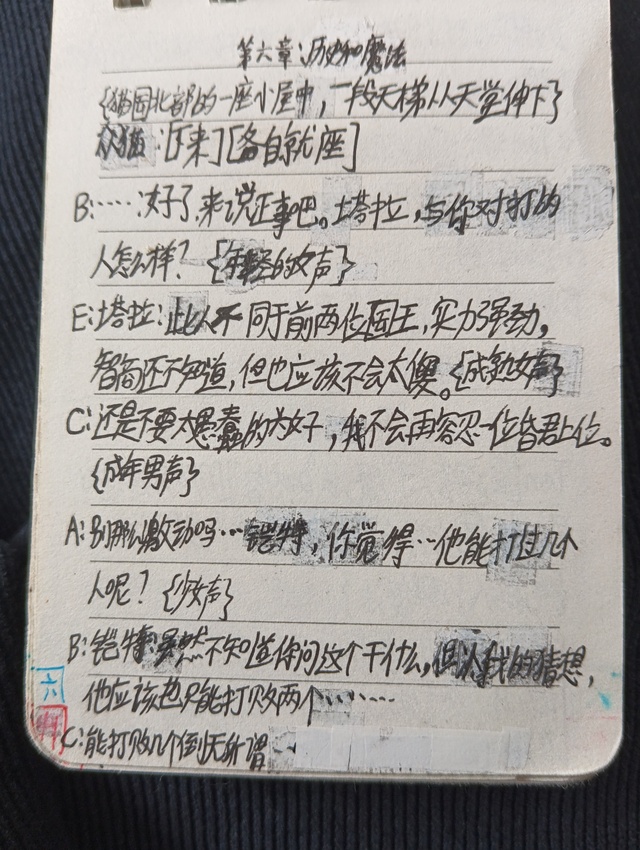 第六章:历史和魔法
{猫国北部的一座小屋中,一段天梯从天堂伸下}
众猫:[下来][各自就座]
B:……:好了,来说正事吧。塔拉,与你对打的
人怎么样?{年轻的女声}
E:塔拉:此人不同于前两位国王,实力强劲,
智商还不知道,但也应该不会太傻。{成熟女声}
C:还是不要太愚蠢的为好,我不会再容忍一位昏君上位。
{成年男声}
A:别那么激动吗…铠特,你觉得…他能打过几个
人呢?{少女声}
B:铠特:虽然不知道你问这个干什么,但以我的猜想,
他应该也只能打败两个……
C:能打败几个倒无所谓
六